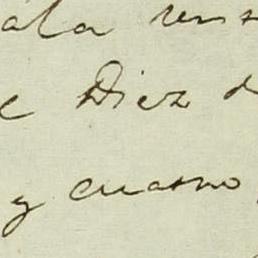 ala
e Diez d
y cuatro